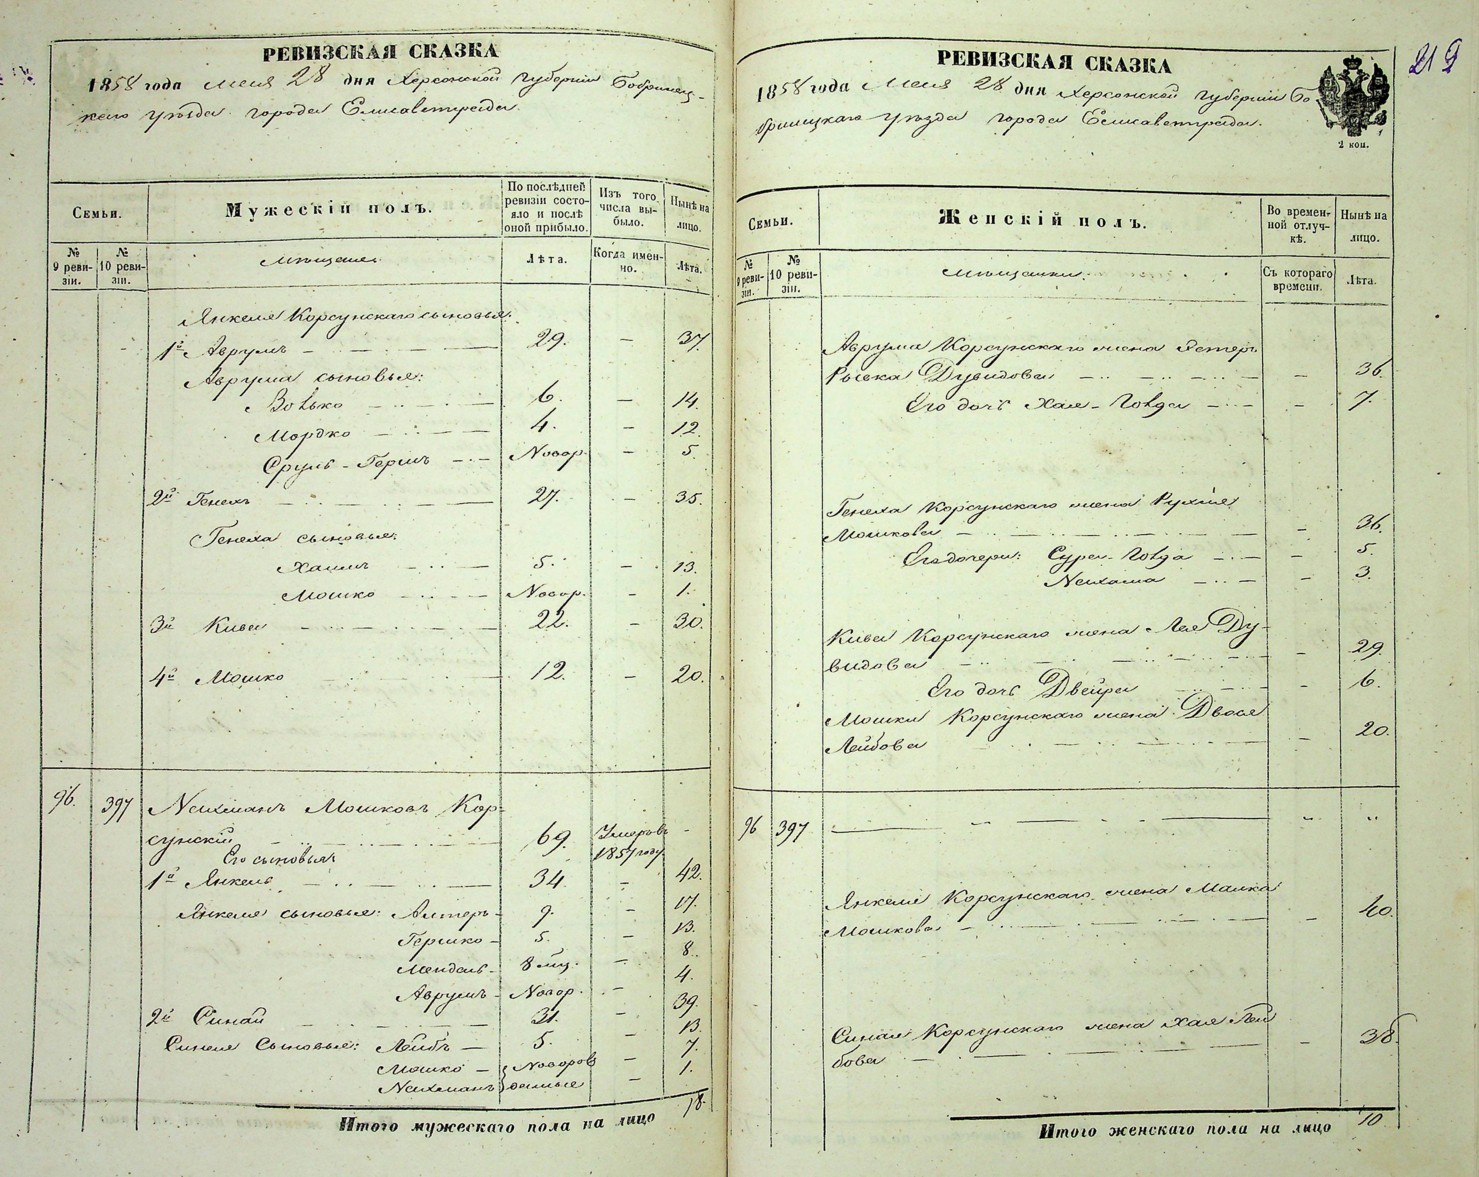 РЕВИЗСКАЯ СКАЗКА
1858 года Мая 28 дня Херсонской Губернии Бобринец-
каго уѣзда города Елисаветграда.
Семьи.
Мужескій полъ.
По послѣдней ревизіи состояло и послѣ оной прибыло.
Изъ того числа выбыло.
Нынѣ на лицо.
№ 9 ревизіи.
№ 10 ревизіи.
Мѣщане.
Лѣта.
Когда именно.
Лѣта.
Янкеля Корсунскаго сыновья:
1й Аврумъ 29. – 37.
Аврума сыновья:
Волько 6. – 14.
Мордко 4. – 12.
Сруль-Гершъ Новор. – 5.
2й Генехъ 27. – 35.
Генеха сыновья:
Хаимъ 5. – 13.
Мошко Новор. – 1.
3й Кива 22. – 30.
4й Мошко 12. – 20.
96. 397 Нихманъ Мошковъ Кор-
сунскій 69. Умеръ въ 1857 году. –
Его сыновья:
1й Янкель 34. – 42.
Янкеля сыновья: Алтеръ 9. – 17.
Гершко 5. – 13.
Мендель 8 мѣц. – 8.
Аврумъ Новор. – 4.
2й Синай 31. – 39.
Синая Сыновья: Лейбъ 5. – 13.
Мошко Новорож – 7.
Нихманъ денные – 1.
Итого мужескаго пола на лицо 18.
РЕВИЗСКАЯ СКАЗКА
212
1858 года Мая 28 дня Херсонской губерніи Бо-
бринецкаго уѣзда города Елисаветграда.
2 коп.
Семьи.
Женскій полъ.
Во временной отлучкѣ.
Нынѣ на лицо.
№ 9 ревизіи.
№ 10 ревизіи.
Мѣщанки.
Съ котораго времени.
Лѣта.
Аврума Корсунскаго жена Эстеръ
Рывка Дувидова – 36.
Его дочь Хая-Говда – 7.
Генеха Корсунскаго жена Рухля
Мошкова – 36.
Его дочери: Сура-Говда – 5.
Нихама – 3.
Кива Корсунскаго жена Лея Ду-
видова – 29.
Его дочь Двейра – 6.
Мошки Корсунскаго жена Двося
Лейбова – 20.
96 397 – „ „
Янкеля Корсунскаго жена Малка
Мошкова – 40.
Синая Корсунскаго жена Хая Лей
бова – 38.
Итого женскаго пола на лицо 10